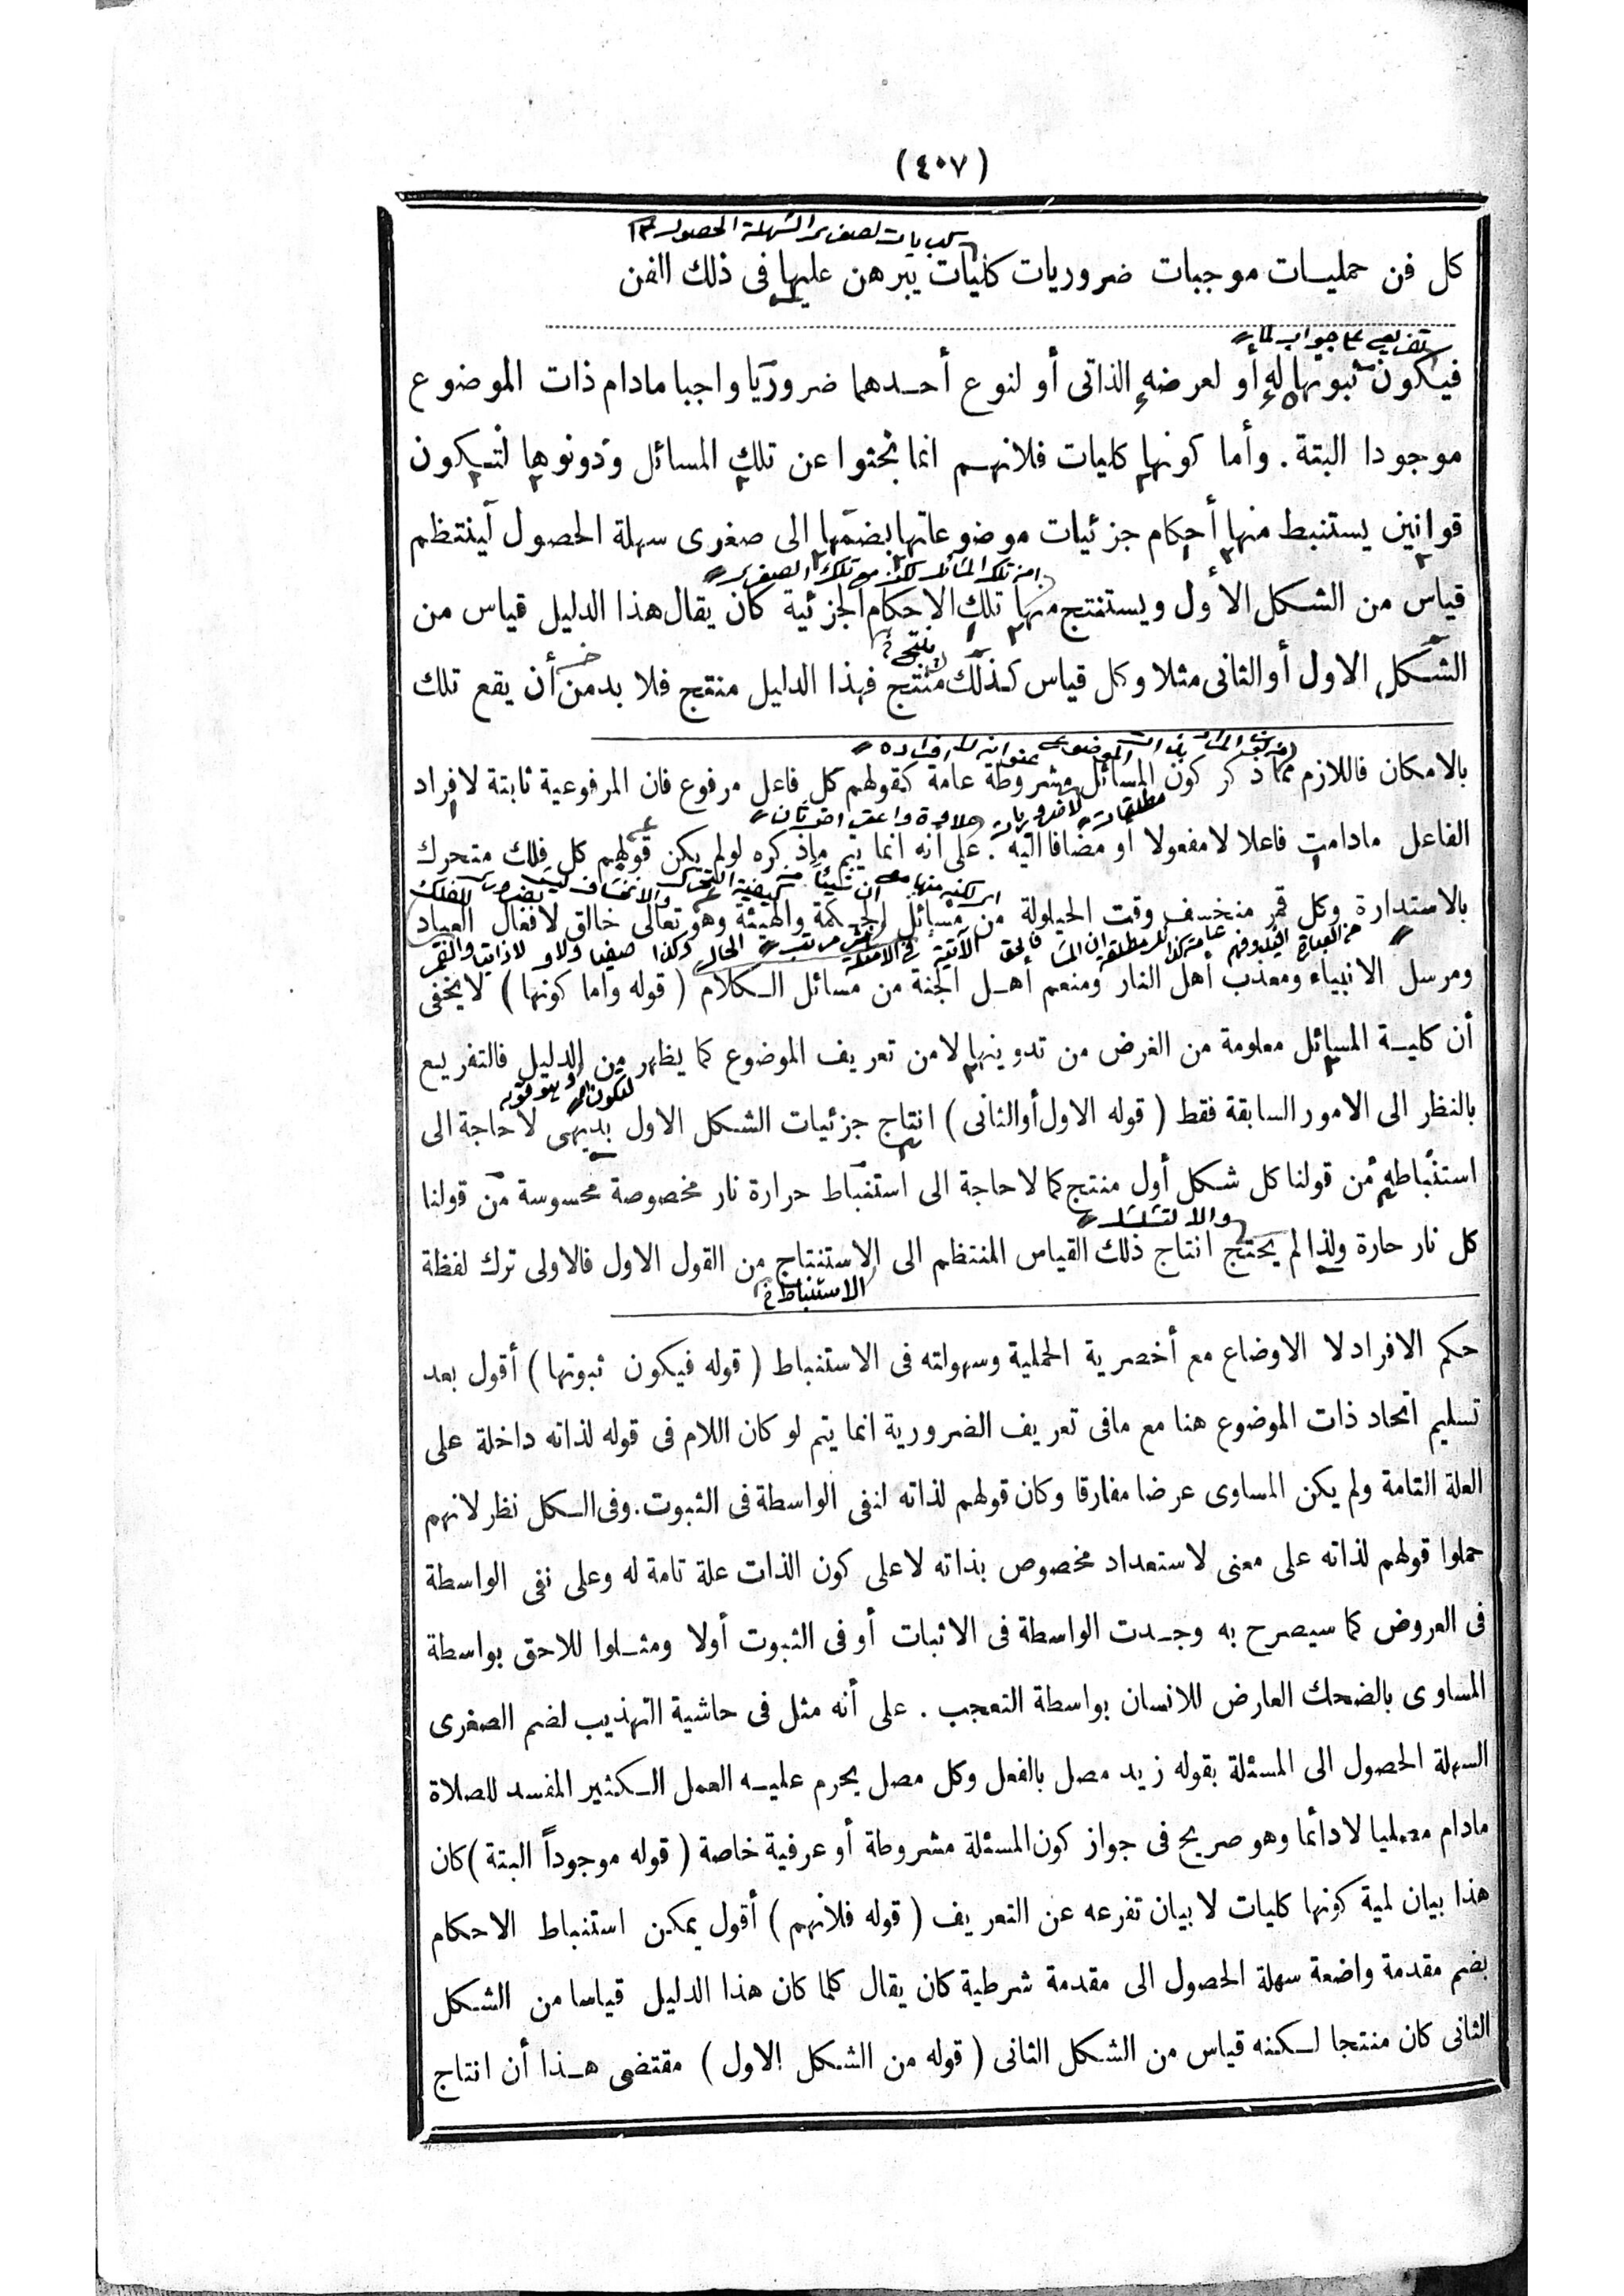 (٤٠٧)
كل فن حمليات موجبات ضروريات كليات يبرهن عليها فى ذلك الفن
فيكون ثبوتها له أو لعرضه الذاتى أو لنوع أحدهما ضروريا واجبا مادام ذات الموضوع
موجودا البتة. وأما كونها كليات فلانهم انما بحثوا عن تلك المسائل ودونوها لتكون
قوانين يستنبط منها أحكام جزئيات موضوعاتها بضمها الى صغرى سهلة الحصول لينتظم
قياس من الشكل الاول ويستنتج منها تلك الاحكام الجزئية كان يقال هذا الدليل قياس من
الشكل الاول أو الثانى مثلا وكل قياس كذلك منتج فهذا الدليل منتج فلا بد من أن يقع تلك
بالامكان فاللازم مما ذكر كون المسائل مشروطة عامة كقولهم كل فاعل مرفوع فان المرفوعية ثابتة لافراد
مطلقات لا ضروريات
الفاعل مادامت فاعلا لا مفعولا أو مضافا اليه. على أنه انما يتم ماذكره لولم يكن قولهم كل فلك متحرك
بالاستدارة وكل قمر منخسف وقت الحيلولة من مسائل الحكمة والهيئة وهو تعالى خالق لافعال العباد
ومرسل الانبياء ومعذب أهل النار ومنعم أهل الجنة من مسائل الكلام (قوله وأما كونها) لايخفى
أن كلية المسائل معلومة من الغرض من تدوينها لامن تعريف الموضوع كما يظهر من الدليل فالتفريع
بالنظر الى الامور السابقة فقط (قوله الاول أوالثانى) انتاج جزئيات الشكل الاول بديهى لاحاجة الى
استنباطه من قولنا كل شكل أول منتج كما لاحاجة الى استنباط حرارة نار مخصوصة محسوسة من قولنا
والا لتسلسل
كل نار حارة ولذا لم يحتج انتاج ذلك القياس المنتظم الى الاستنتاج من القول الاول فالاولى ترك لفظة
الاستنباط
حكم الافراد لا الاوضاع مع أخصرية الحملية وسهولته فى الاستنباط (قوله فيكون ثبوتها) أقول بعد
تسليم اتحاد ذات الموضوع هنا مع مافى تعريف الضرورية انما يتم لو كان اللام فى قوله لذاته داخلة على
العلة التامة ولم يكن المساوى عرضا مفارقا وكان قولهم لذاته لنفى الواسطة فى الثبوت. وفى الكل نظر لانهم
حملوا قولهم لذاته على معنى لاستعداد مخصوص بذاته لا على كون الذات علة تامة له وعلى نفى الواسطة
فى العروض كما سيصرح به وجدت الواسطة فى الاثبات أو فى الثبوت أولا ومثلوا للاحق بواسطة
المساوى بالضحك العارض للانسان بواسطة التعجب. على أنه مثل فى حاشية التهذيب لضم الصغرى
السهلة الحصول الى المسئلة بقوله زيد مصل بالفعل وكل مصل يحرم عليه العمل الكثير المفسد للصلاة
مادام مصليا لادائما وهو صريح فى جواز كون المسئلة مشروطة أو عرفية خاصة (قوله موجوداً البتة) كان
هذا بيان لمية كونها كليات لا بيان تفرعه عن التعريف (قوله فلانهم) أقول يمكن استنباط الاحكام
بضم مقدمة واضعة سهلة الحصول الى مقدمة شرطية كان يقال كلما كان هذا الدليل قياسا من الشكل
الثانى كان منتجا لكنه قياس من الشكل الثانى (قوله من الشكل الاول) مقتضى هذا أن انتاج